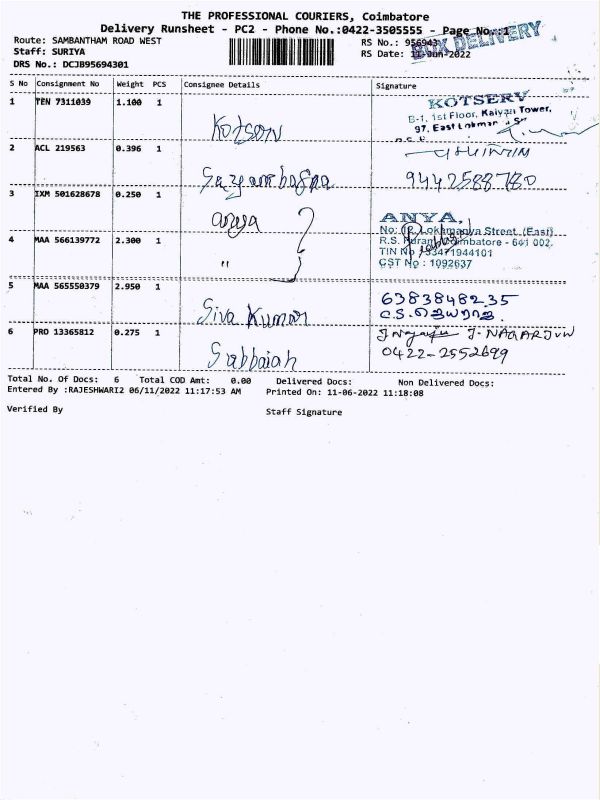 THE PROFESSIONAL COURIERS, Coimbatore
Delivery Runsheet - PC2 - Phone No.:0422-3505555 - Page No.:1
BOX DELIVERY
Route: SAMBANTHAM ROAD WEST
RS No.: 956943
Staff: SURIYA
RS Date: 11-Jun-2022
DRS No.: DCJB95694301
S No Consignment No Weight PCS Consignee Details Signature
1 TEN 7311039 1.100 1
KOTSERV
B-1, 1st Floor, Kalyan Tower,
97, East Lokman
2 ACL 219563 0.396 1
9442588780
3 IXM 501628678 0.250 1 anya
ANYA,
No: Lokamanya Street, (East)
R.S. Puram, Coimbatore - 641 002.
4 MAA 566139772 2.300 1 "
TIN No 33471944101
CST No : 1092637
5 MAA 565550379 2.950 1 Siva Kumar
6383848235
6 PRO 13365812 0.275 1 Sabbaiah
0422-2552699
Total No. Of Docs: 6 Total COD Amt: 0.00 Delivered Docs: Non Delivered Docs:
Entered By :RAJESHWARI2 06/11/2022 11:17:53 AM Printed On: 11-06-2022 11:18:08
Verified By Staff Signature